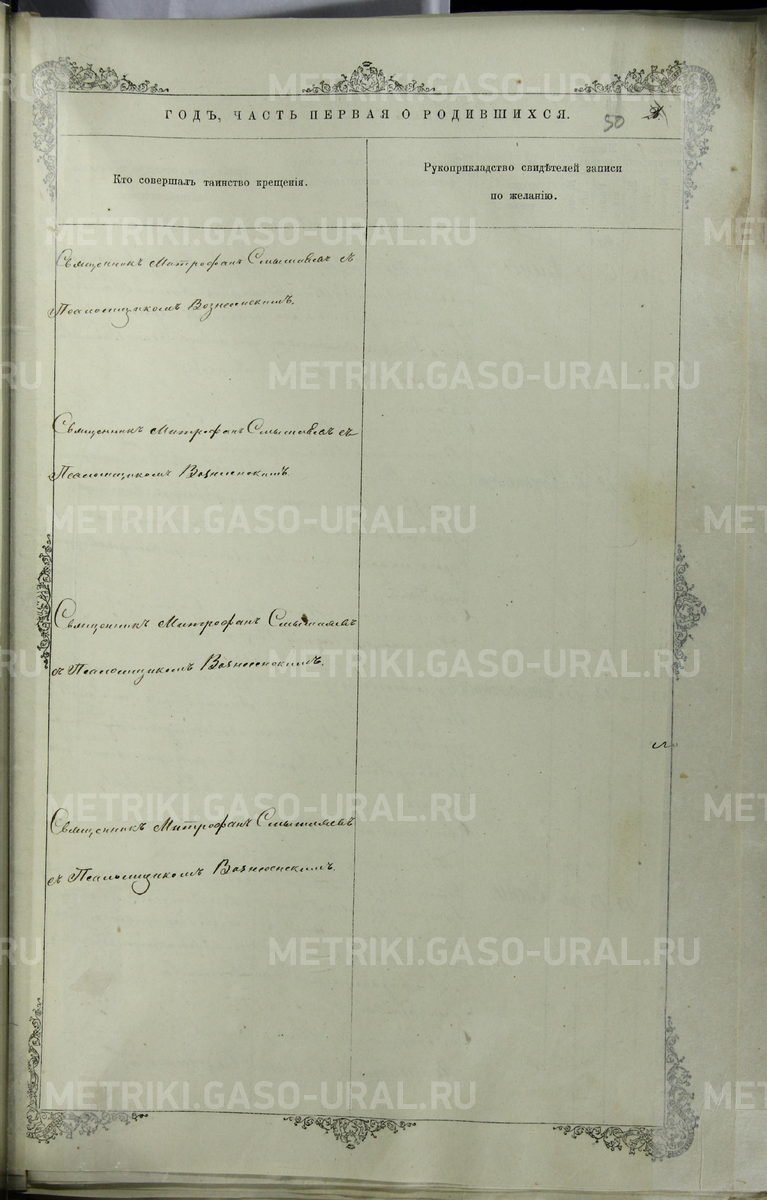 ГОДЪ, ЧАСТЬ ПЕРВАЯ О РОДИВШИХСЯ.
50
Кто совершалъ таинство крещенія.
Рукоприкладство свидѣтелей записи
по желанію.
Священникъ Митрофанъ Смышляевъ съ
Псаломщикомъ Вознесенскимъ.
Священникъ Митрофанъ Смышляевъ съ
Псаломщикомъ Вознесенскимъ
Священникъ Митрофанъ Смышляевъ
съ Псаломщикомъ Вознесенскимъ.
Священникъ Митрофанъ Смышляевъ
съ Псаломщикомъ Вознесенскимъ.
METRIKI.GASO-URAL.RU